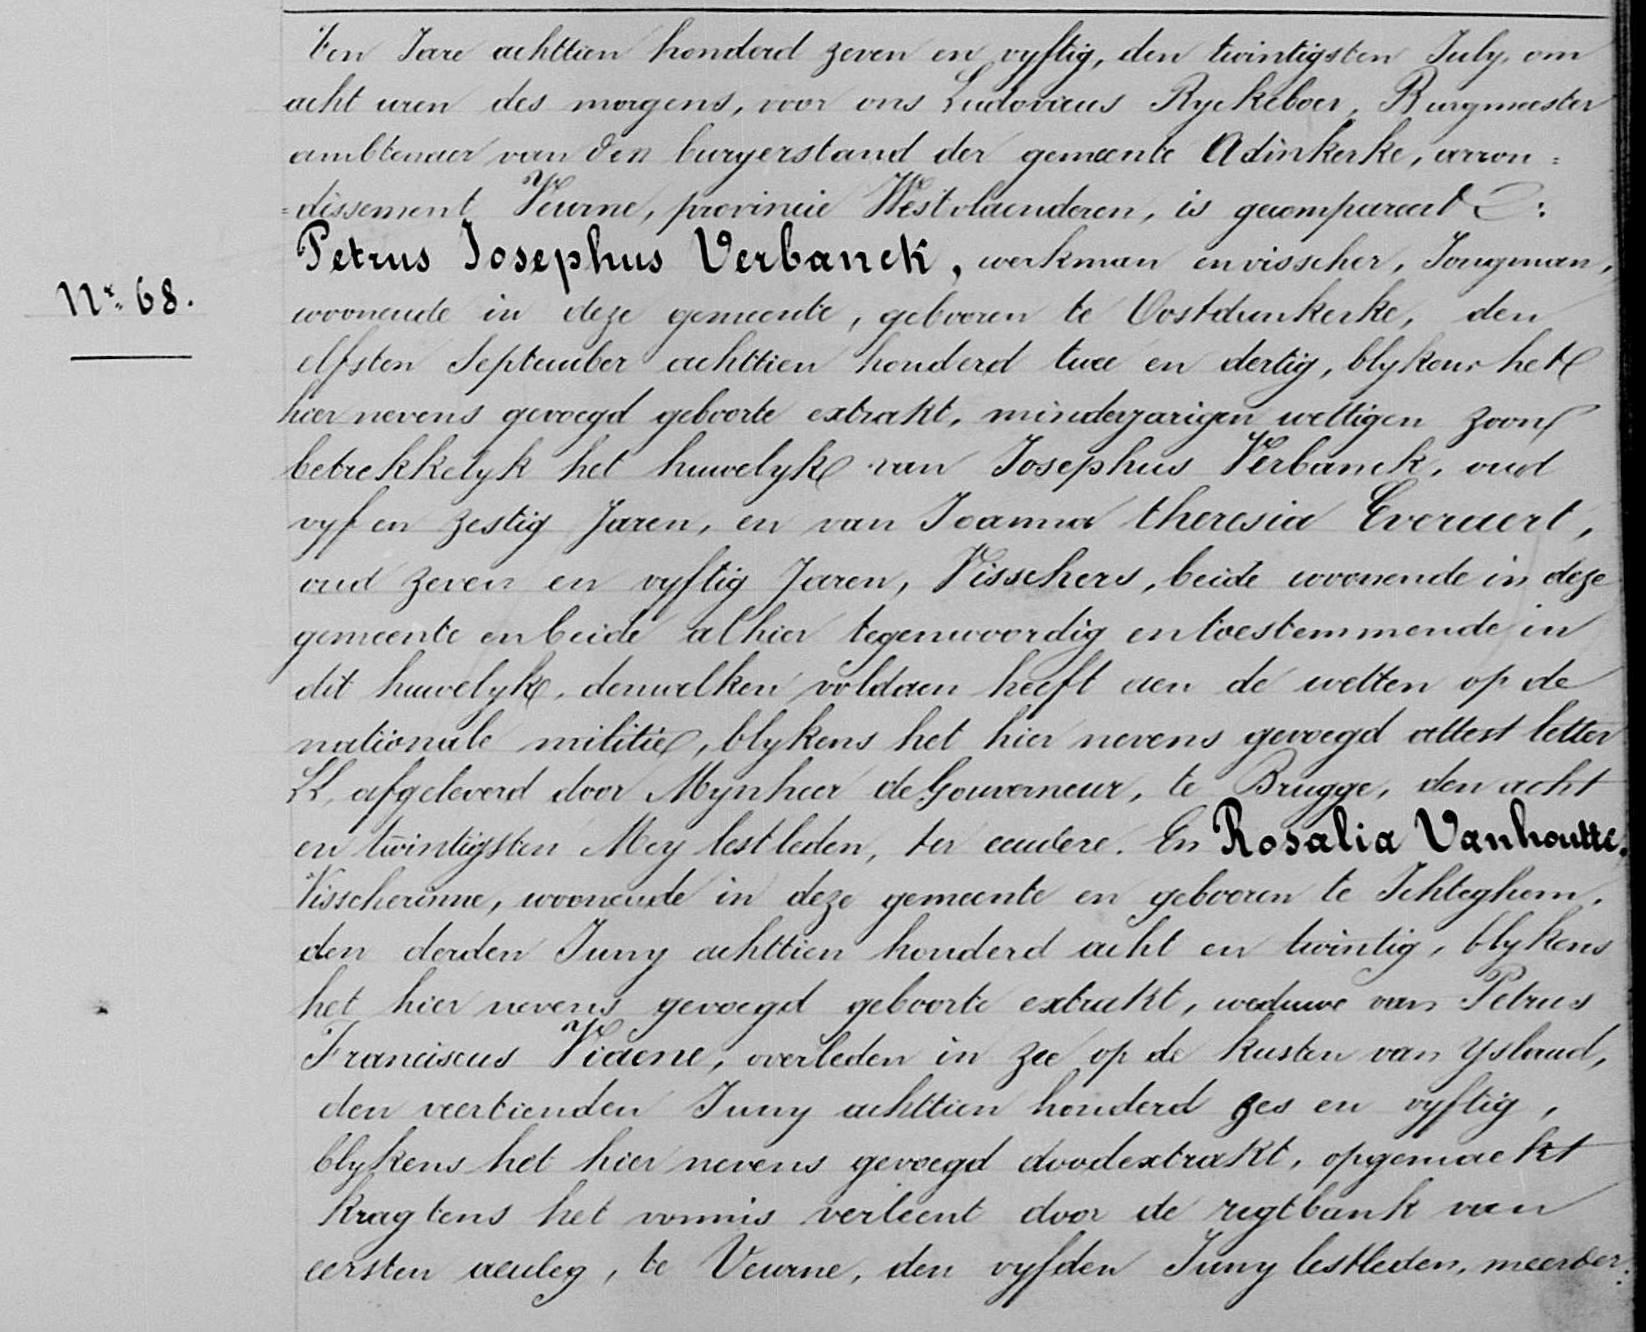 Ten Jare achttien honderd zeven en vyftig, den twintigsten July, om
acht uren des morgens, voor ons Ludovicus Ryckeboer, Burgmeester
ambtenaer van den burgerstand der gemeente Adinkerke, arron=
=dissement Veurne, provincie Westvlaenderen, is gecompareert :
Petrus Josephus Verbanck, werkman en visscher, Jongman,
Nr. 68.
woonende in deze gemeente, gebooren te Oostdunkerke, den
elfsten September achttien honderd twee en dertig, blykens het
hier nevens gevoegd geboorte extrakt, minderjarigen wettigen zoon
betrekkelyk het huwelyk van Josephus Verbanck, oud
vyf en zestig Jaren, en van Joanna theresia Everaert,
oud zeven en vyftig Jaren, Visschers, beide woonende in deze
gemeente en beide alhier tegenwoordig en toestemmende in
dit huwelyk, denwelken voldaen heeft aen de wetten op de
nationale militie, blykens het hier nevens gevoegd attest letter
LL, afgeleverd door Mynheer de Gouverneur, te Brugge, den acht
en twintigsten Mey lestleden, ter eendere. En Rosalia Vanhoutte,
Visscherinne, woonende in deze gemeente en gebooren te Ichteghem,
den derden Juny achttien honderd acht en twintig, blykens
het hier nevens gevoegd geboorte extrakt, weduwe van Petrus
Franciscus Viaene, overleden in zee op de kusten van Ysland,
den veertienden Juny achttien honderd zes en vyftig,
blykens het hier nevens gevoegd doodextrakt, opgemaekt
kragtens het vonnis verleent door de regtbank van
eersten aenleg, te Veurne, den vyfden Juny lestleden, meerder